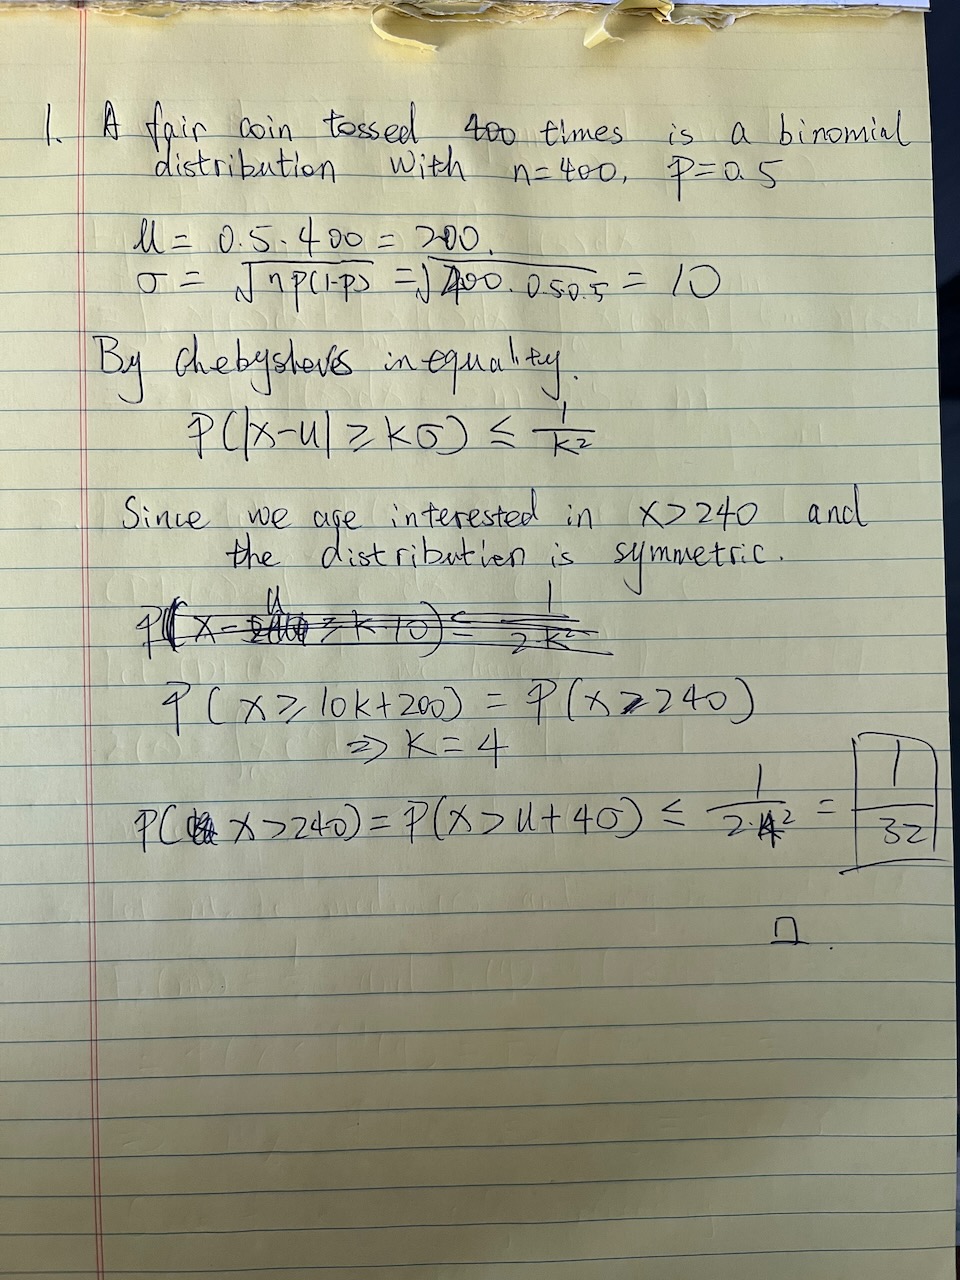 1. A fair coin tossed 400 times is a binomial
distribution with n=400, p=0.5
μ = 0.5·400 = 200.
σ = √np(1-p) = √400·0.5·0.5 = 10
By chebyshevs inequality.
P(|x-μ| ≥ kσ) ≤ 1/k²
Since we age interested in x>240 and
the distribution is symmetric.
P(x ≥ 10k+200) = P(x ≥ 240)
⇒ k = 4
P(x>240) = P(x > μ+4σ) ≤ 1/2·4² = 1/32
□.